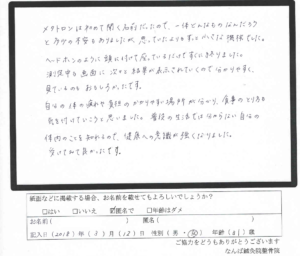 メタトロンは初めて聞く名前だったので、一体どんなものなんだろう
と多少の不安もありましたが、思っていたよりも手がるな機械でした。
ヘッドホンのように頭に付けて座っているだけですぐに終りました。
測定中も画面に次々と結果が表示されていくので分かりやすく、
見ているのもおもしろかったです。
自分の体の疲れや負担のかかりやすい場所が分かり、食事のとり方も
気を付けていこうと思いました。普段の生活では分からない自分の
体内のことを知れるので、健康への意識が強くなりました。
受けてみて良かったです。
紙面などに掲載する場合、お名前を載せてもよろしいでしょうか?
□はい □いいえ 匿名で □年齢はダメ
お名前( ) 匿名( )
記入日(2018)年(3)月(12)日 性別(男・女) 年齢( )歳
ご協力をどうもありがとうございます
なんば鍼灸院整骨院